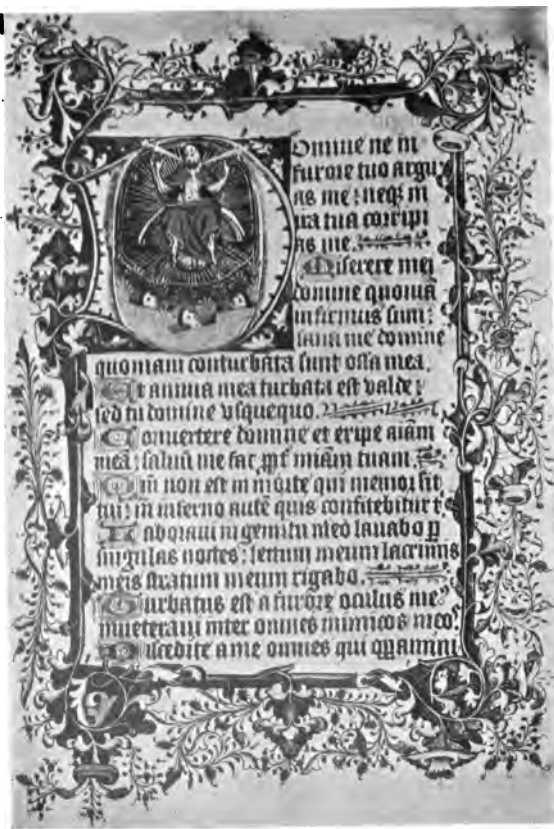 Domine ne in
furore tuo argu
as me : neqꝫ in
ira tua corripi
as me.
Miserere mei
domine quoniā
infirmus sum :
sana me domine
quoniam conturbata sunt ossa mea.
Et anima mea turbata est valde :
sed tu domine vsquequo.
Conuertere domine et eripe aīam
meā : saluū me fac ꝓpt miām tuam.
Qm̄ non est in morte qui memor sit
tui : in inferno autē quis confitebitur t
Laboraui in gemitu meo lauabo ꝑ
singulas noctes : lectum meum lacrimis
meis stratum meum rigabo.
Turbatus est a furore oculus meꝰ
inueteraui inter omnes inimicos meos
Discedite a me omnes qui opꝑamini